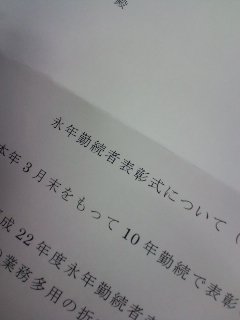 殿
永年勤続者表彰式について（
本年3月末をもって10年勤続で表彰
成22年度永年勤続者表
業務多用の折